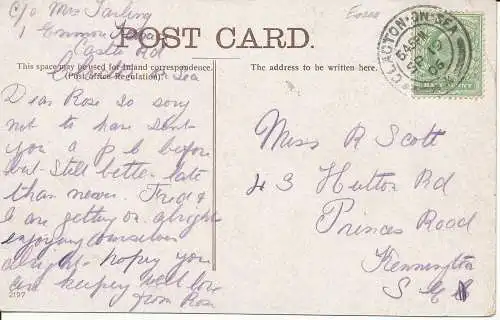 c/o Mrs Tarling
1 Common
Castle Rd
Sea
Essex
POST CARD.
This space may be used for Inland correspondence.
(Post office Regulation).
The address to be written here.
CLACTON-ON-SEA
06
HALFPENNY
Dear Rose So sory
not to have sent
you a p c before
but still better late
than never. Fred &
I are getting on alright
enjoying ourselves
alright hoping you
are keeping well love
from Rose
2197
Miss R Scott
43 Hutton Rd
Princes Road
Kennington
S E